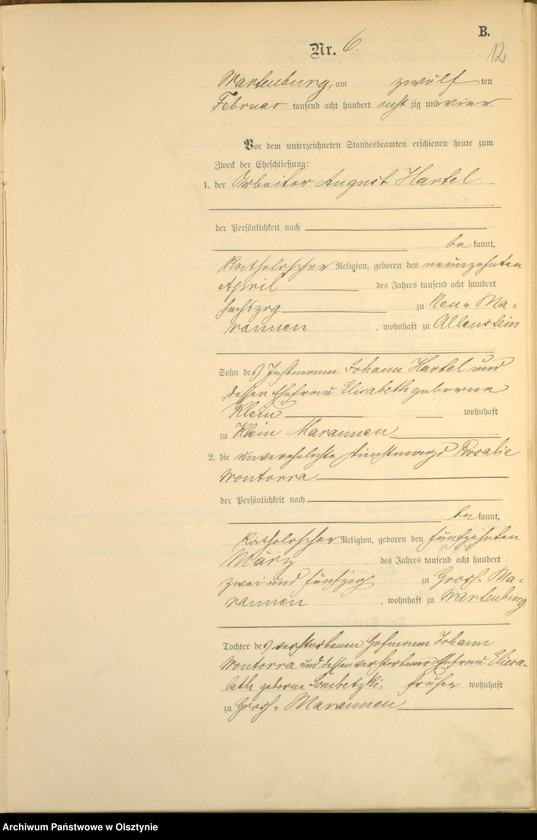 B.
12
Nr. 6.
Wartenburg, am zwölf ten
Februar tausend acht hundert acht zig und vier
Vor dem unterzeichneten Standesbeamten erschienen heute zum
Zweck der Eheschließung:
1. der Arbeiter August Hartel
der Persönlichkeit nach
be kannt,
katholischer Religion, geboren den neunzehnten
April des Jahres tausend acht hundert
sechszig zu Neu- Ma-
raunen, wohnhaft zu Allenstein
Sohn des Instmann Johann Hartel und
dessen Ehefrau Elisabeth geborene
Klein wohnhaft
zu Klein Maraunen
2. die unverehelichte Dienstmagd Rosalie
Wontorra
der Persönlichkeit nach
be kannt,
katholischer Religion, geboren den fünfzehnten
März des Jahres tausend acht hundert
zwei und fünfzig zu Groß- Ma-
raunen, wohnhaft zu Wartenburg
Tochter des verstorbenen Johann
Wontorra und dessen verstorbener Ehefrau Elisa-
beth geborne früher wohnhaft
zu Groß- Maraunen
Archiwum Państwowe w Olsztynie